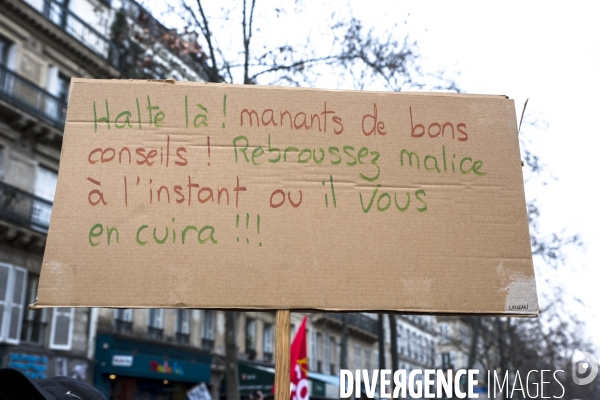 Halte là ! manants de bons
conseils ! Rebroussez malice
à l'instant ou il vous
en cuira !!!
DIVERGENCE IMAGES